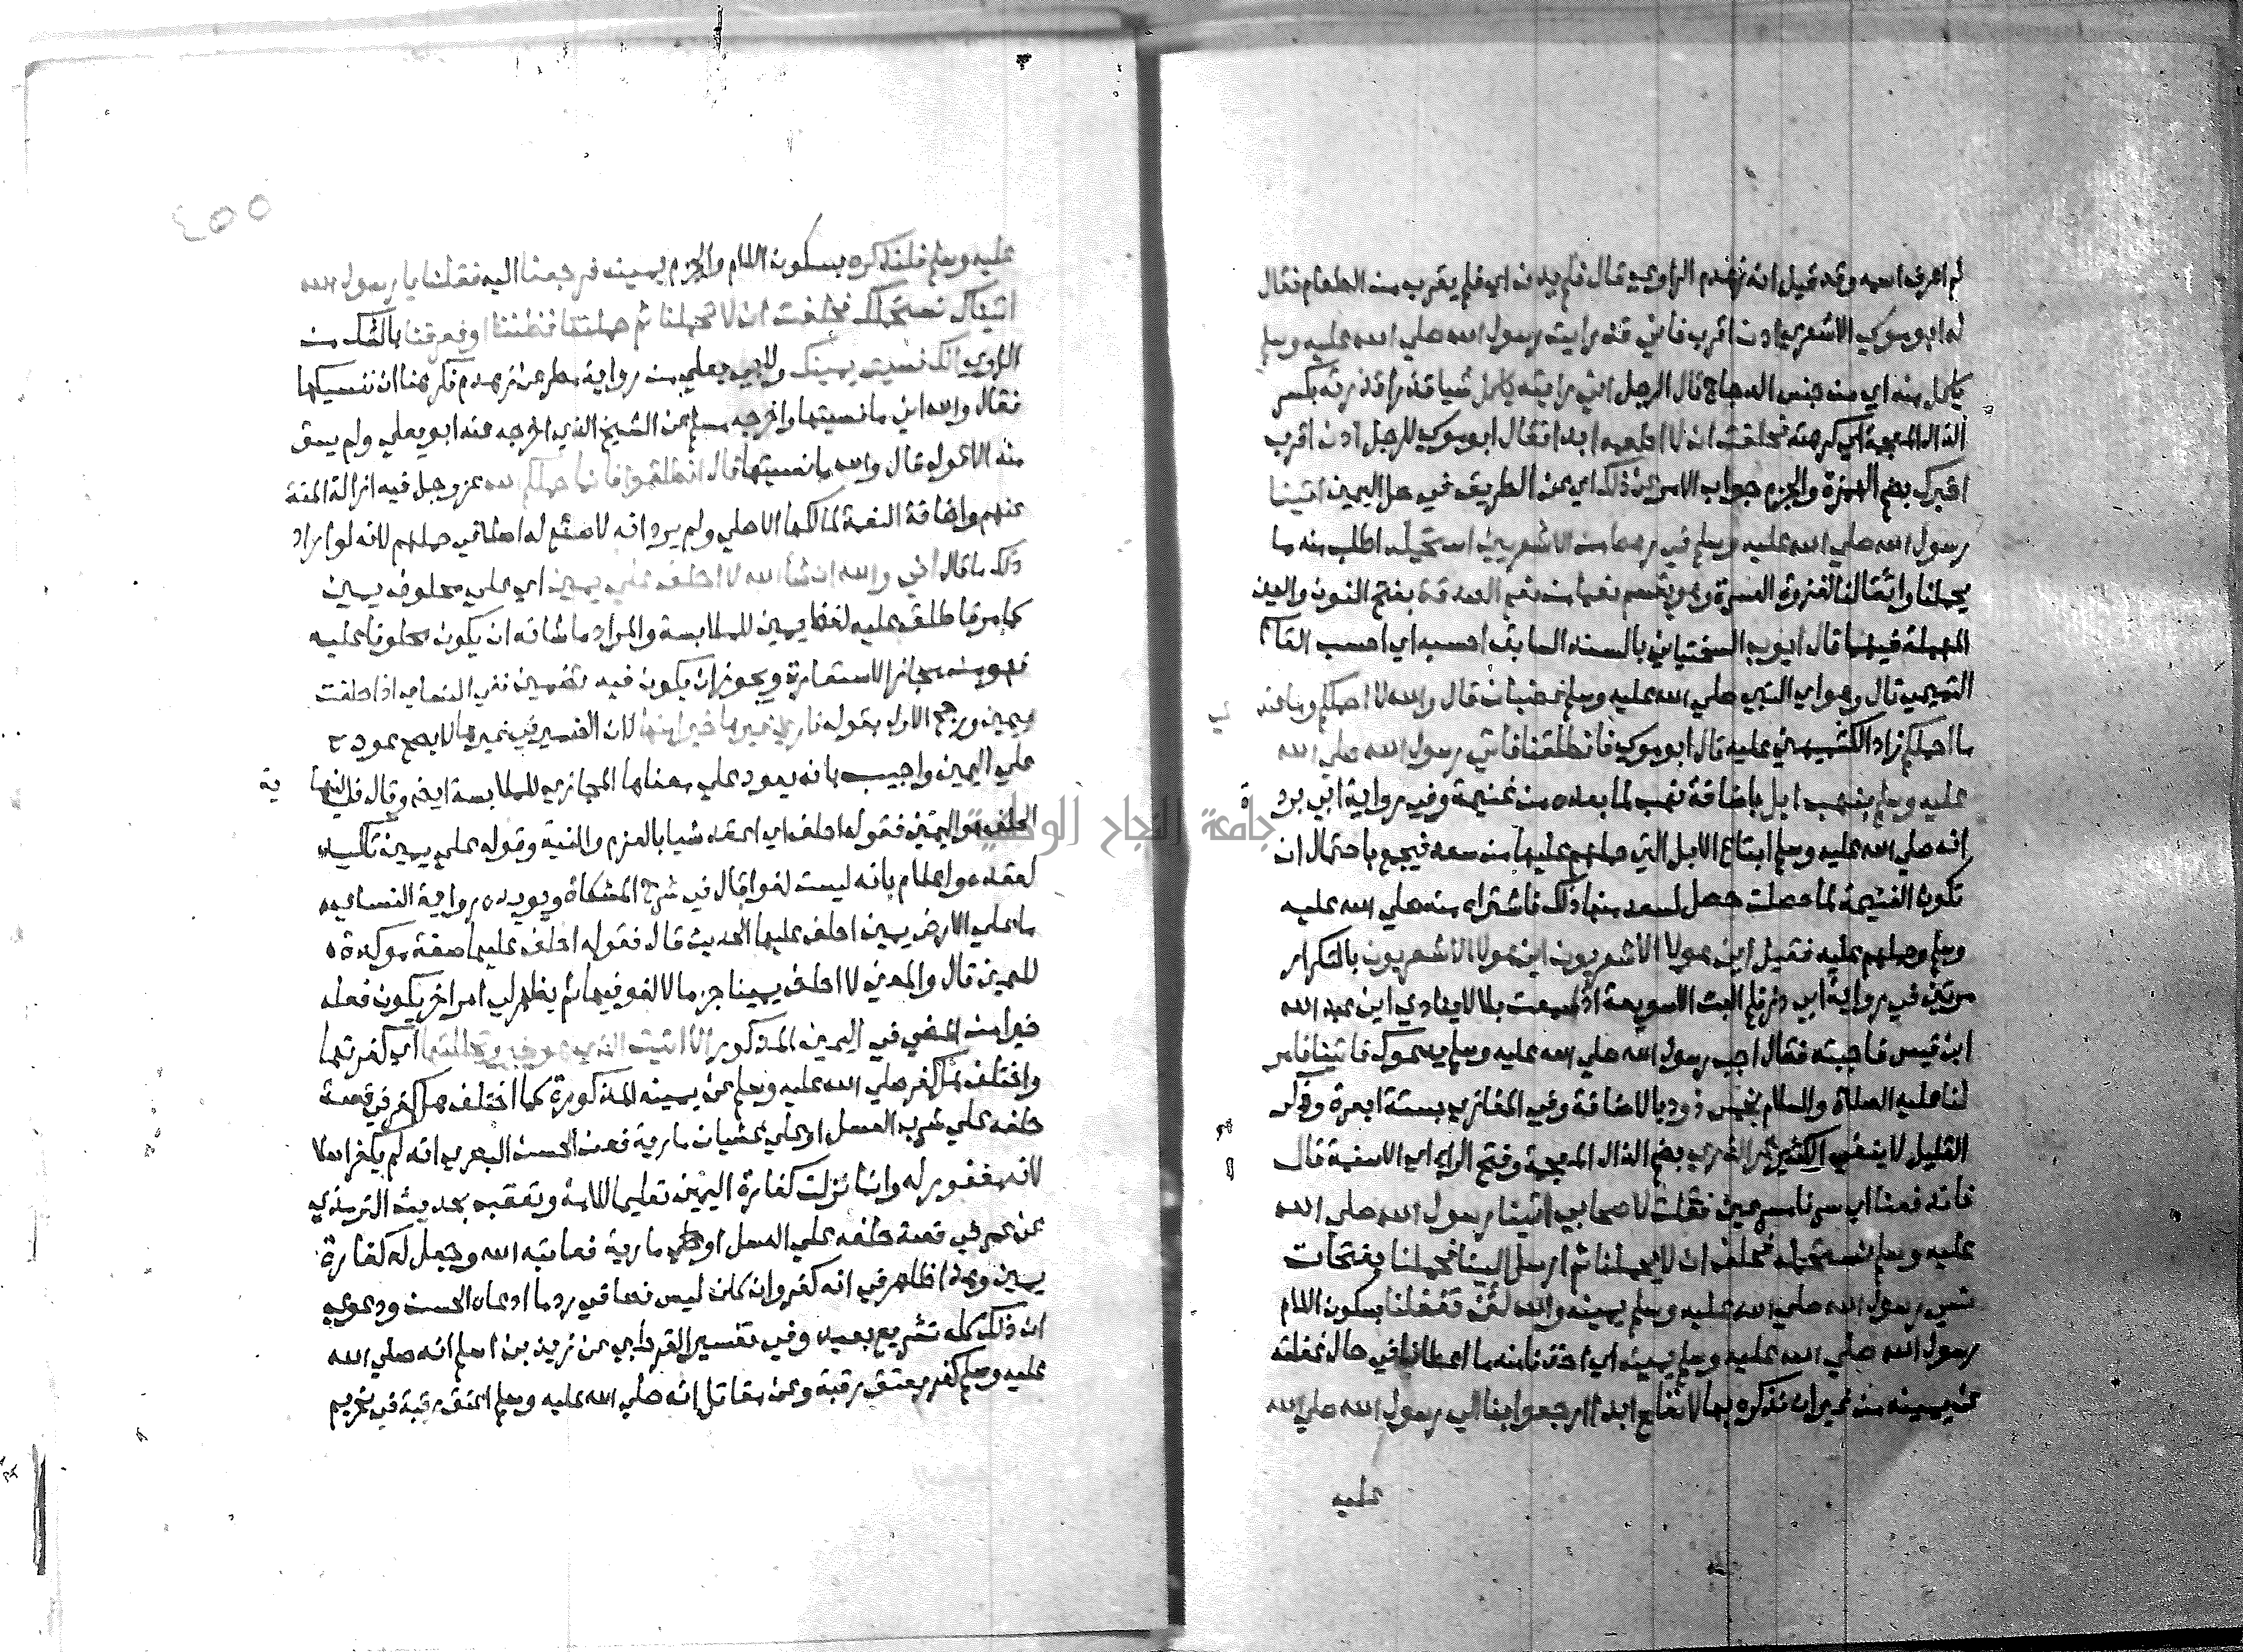 لم اعرف اسمه وقد قيل انه زهدم الراوي قال فلم يدن اي فلم يقرب من الطعام فقال
له ابو موسي الاشعري ادن اقرب فاني قد رايت رسول الله صلي الله عليه وسلم
ياكل منه اي من جنس الدجاج قال الرجل اني رايته ياكل شيا قذرا قذرته بكسر
الذال المعجمة اي كرهته فحلفت ان لا اطعمه ابدا فقال ابو موسي للرجل ادن اقرب
اخبرك بضم الهمزة والجزم جواب الامر عن ذلك اي عن الطريق في حل اليمين اتينا
رسول الله صلي الله عليه وسلم في رهط من الاشعريين استحمله اطلب منه ما
يحملنا واثقالنا لغزوة العسرة وهو يقسم نعما من نعم الصدقة بفتح النون والعين
المهملة فيهما قال ايوب السختياني بالسند السابق احسبه اي احسب القاسم
التميمي قال وهو اي النبي صلي الله عليه وسلم غضبان قال والله لا احملكم وما عندي
ما احملكم زاد الكشميهني عليه قال ابو موسي فانطلقنا فاتي رسول الله صلي الله
عليه وسلم بنهب ابل باضافة نهب لما بعده من غنيمة وفي رواية ابي بردة
انه صلي الله عليه وسلم ابتاع الابل التي حملهم عليها من سعد فيجمع باحتمال ان
تكون الغنيمة لما حصلت حصل لسعد منها ذلك فاشتراه منه صلي الله عليه
وسلم وحملهم عليه فقيل اين هولا الاشعريون اين هولا الاشعريون بالتكرار
مرتين في رواية ابي ذر فلم البث الاسويعة اذ سمعت بلالا ينادي اين عبد الله
ابن قيس فاجبته فقال اجب رسول الله صلي الله عليه وسلم يدعوك فاتينا فامر
لنا عليه الصلاة والسلام بخمس ذود بالاضافة وفي المغازي بستة ابعرة وذكر
القليل لا ينفي الكثير غر الذري بضم الذال المعجمة وفتح الراء اي الاسنمة قال
فاندفعنا اي سرنا مسرعين فقلت لاصحابي اتينا رسول الله صلي الله
عليه وسلم نستحمله فحلف ان لا يحملنا ثم ارسل الينا فحملنا بفتحات
نسي رسول الله صلي الله عليه وسلم يمينه والله لئن تغفلنا بسكون اللام
رسول الله صلي الله عليه وسلم يمينه اي اخذنا منه ما اعطانا في حال غفلته
عن يمينه من غير ان نذكره بها لا نفلح ابدا ارجعوا بنا الي رسول الله صلي الله
عليه
عليه وسلم فلنذكره بسكون اللام والجزم يمينه فرجعنا اليه فقلنا يا رسول الله
اتيناك نستحملك فحلفت ان لا تحملنا ثم حملتنا فظننا او فعرفنا بالشك من
الراوي انك نسيت يمينك ولابي يعلي من رواية مطر عن زهدم فكرهنا ان ننسيكها
فقال والله اني ما نسيتها واخرجه مسلم عن الشيخ الذي اخرجه عنه ابو يعلي ولم يسق
منه الا قوله قال والله ما نسيتها قال انطلقوا فانما حملكم الله عز وجل فيه ازالة المنة
عنهم واضافة النعمة لمالكها الاصلي ولم يرد انه لا صنع له اصلا في حملهم لانه لو اراد
ذلك ما قال اني والله ان شا الله لا احلف علي يمين اي علي محلوف يمين
كما مر فاطلق عليه لفظ يمين للملابسة والمراد ما شانه ان يكون محلوفا عليه
فهو من مجاز الاستعارة ويجوز ان يكون فيه تضمين ففي النساي اذا حلفت
بيمين ورجح الاول بقوله فاري غيرها خيرا منها لان الضمير في غيرها لا يصح عوده
علي اليمين واجيب بانه يعود علي معناها المجازي للملابسة ايضا وقال في النهاية
الحلف هو اليمين فقوله احلف اي اعقد شيا بالعزم والنية وقوله علي يمين تاكيد
لعقده واعلام بانه ليست لغوا قال في شرح المشكاة ويويده رواية النساي
ما علي الارض يمين احلف عليها الحديث قال فقوله احلف عليها صفة موكدة
لليمين قال والمعني لا احلف يمينا جزما لا لغو فيها ثم يظهر لي امر اخر يكون فعله
خيرا من المضي في اليمين المذكور الا اتيت الذي هو خير وتحللتها اي كفرتها
واختلف هل كفر صلي الله عليه وسلم عن يمينه المذكورة كما اختلف هل كفر في قصة
حلفه علي شرب العسل او علي غشيان مارية فعن الحسن البصري انه لم يكفر اصلا
لانه مغفور له وانما نزلت كفارة اليمين تعليما للامة وتعقب بحديث الترمذي
عن عمر في قصة حلفه علي العسل او علي مارية فعاتبه الله وجعل له كفارة
يمين وهذا ظاهر في انه كفر وان كان ليس نصا في رد ما ادعاه الحسن ودعوي
ان ذلك كله تشريع بعيد وفي تفسير القرطبي عن زيد بن اسلم انه صلي الله
عليه وسلم كفر بعتق رقبة وعن مقاتل انه صلي الله عليه وسلم اعتق رقبة في تحريم
جامعة النجاح الوطنية